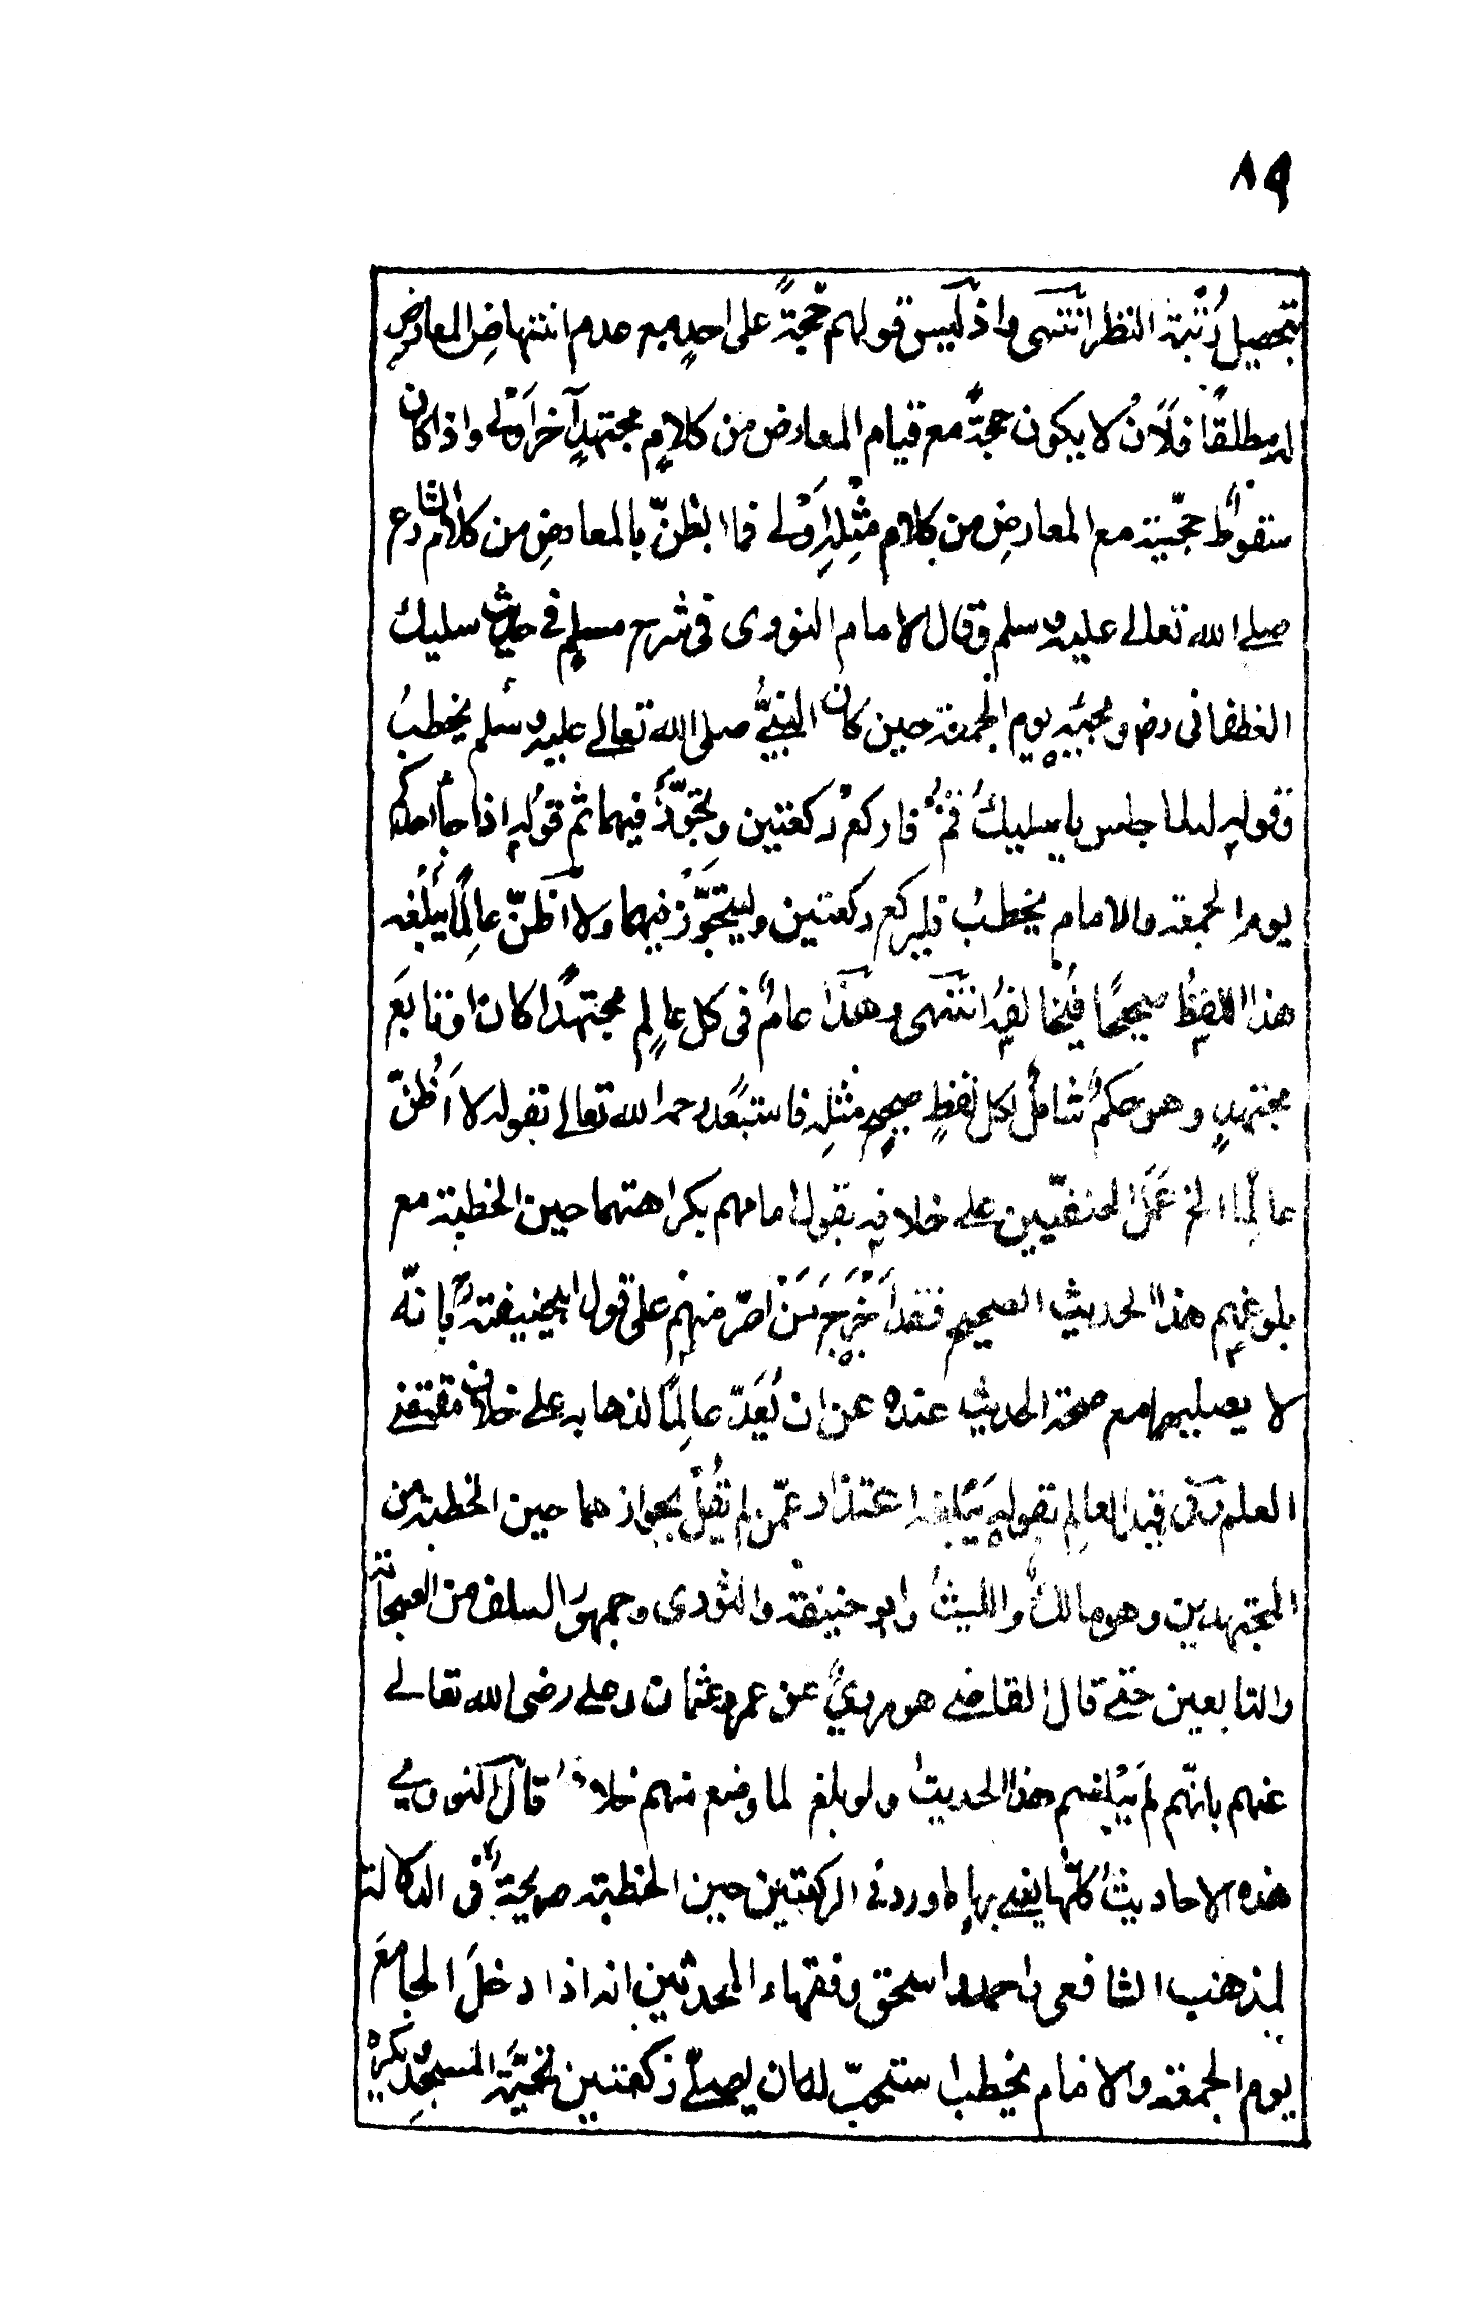 ٨٩
بتحصيل رُتبة النظر انتهى واذ ليس قولهم حجّةً على احدٍ مع عدم انتهاضِ المعارضِ
له مطلقًا فَلَاَنْ لا يكون حجةً مع قيام المعارض من كلامِ مجتهدٍ آخر اَوْلى واذا كان
سقوطُ حجّيته مع المعارضِ من كلام مثلِهِ اَوْلے فما الظنّ بالمعارضِ من كلام الشارع
صلے الله تعالى عليه وسلم وقال الامام النووى فى شرح مسلمٍ فے حديث سليك
الغطفانى رض ومجيئِهِ يوم الجمعة حين كان النبىُّ صلى الله تعالے عليه وسلم يخطبُ
وقولِه له لما جلس يا سليكُ قُمْ فاركعْ ركعتين وتجوَّزْ فيهما ثم قولِهِ اذا جاء احدكم
يوم الجمعة والامام يخطبُ فليركع ركعتين وليتجوَّزْ فيهما ولا اَظنّ عالِمًا يَبْلُغه
هذا اللفظُ صحيحًا فيُخالفُه انتهى وهذا عامٌ فى كل عالِمٍ مجتهدًا كان او تابعَ
مجتهدٍ وهو حكمٌ شاملٌ لكل لفظٍ صحيحٍ مثلِه فاستبعد رحمه الله تعالے بقوله لا اَظُنّ
عالِمًا الخ عَمَلَ الحنفيّين علے خلافِه بقول امامهم بكراهتهما حين الخطبة مع
بلوغِهِم هذا الحديث الصحيح فقد اَخْرَجَ مَنْ اصرّ منهم على قول ابيحنيفة رح بانّه
لا يصليهما مع صحة الحديث عنده عن ان يُعَدّ عالِمًا لذهابه علے خلاف مقتضے
العلم وفى قيد العالِم بقولِه يَبْلغه اعتذار عمّن لم يَقُلْ بجوازهما حين الخطبة من
المجتهدين وهو مالكٌ والليثُ وابو حنيفة والثورى وجمهورُ السلف من الصحابة
والتابعين حتے قال القاضے هو مرويٌّ عن عمر وعثمان وعلے رضى الله تعالے
عنهم بانّهم لم يَبْلغهم هذا الحديث ولو بلغ لما وضع منهم خلافُ قال النووي
هذه الاحاديثُ كلّها يعنے بها ما ورد فے الركعتين حين الخطبة صريحةٌ فى الدلالة
لمذهب الشافعى واحمد واسحق وفقهاء المحدثين انه اذا دخلَ الجامعَ
يوم الجمعة والامام يخطب استحبّ له ان يصلّے ركعتين تحيَّة المسجدِ ويكره